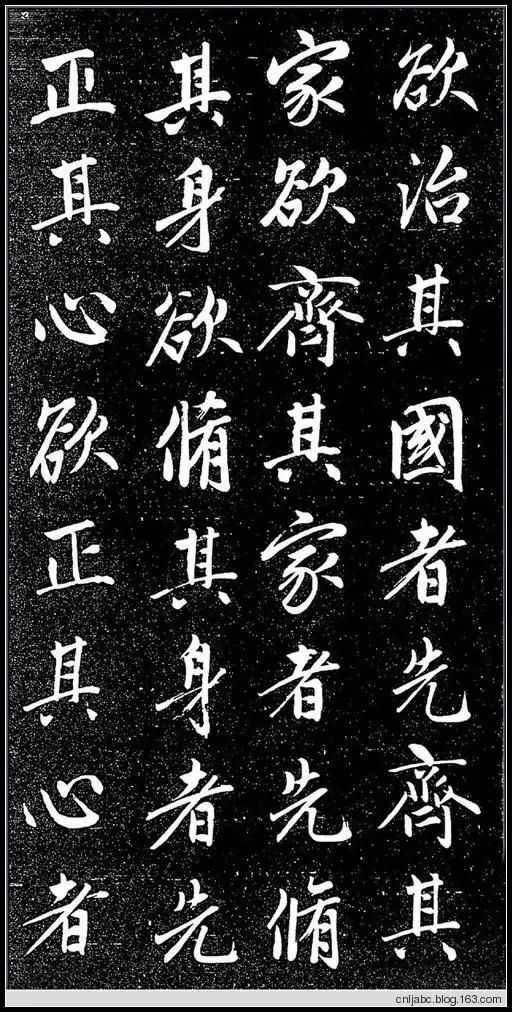 欲治其國者先齊其
家欲齊其家者先脩
其身欲脩其身者先
正其心欲正其心者
cnljabc.blog.163.com